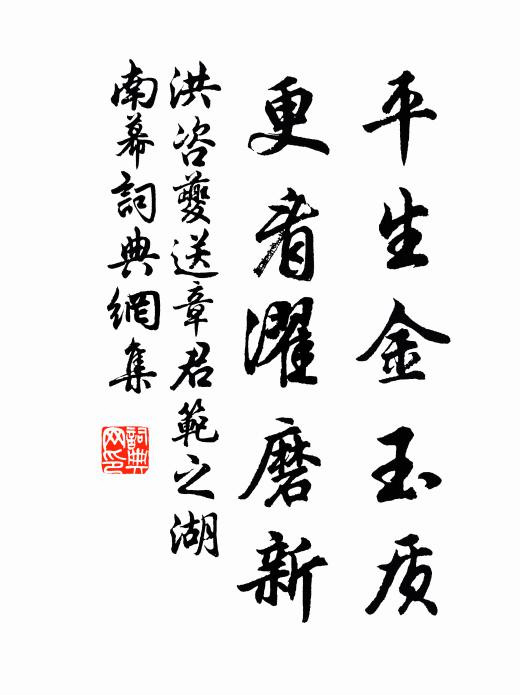 平生金玉质
更看濯磨新
洪咨夔送章君範之湖
南幕詞典網集
詞典
网印